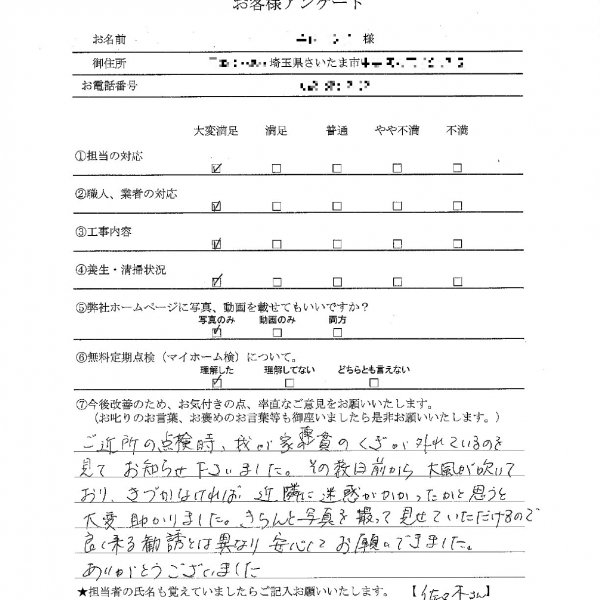 お客様アンケート
お名前 様
御住所 埼玉県さいたま市
お電話番号
大変満足 満足 普通 やや不満 不満
①担当の対応
②職人、業者の対応
③工事内容
④養生・清掃状況
⑤弊社ホームページに写真、動画を載せてもいいですか？
写真のみ 動画のみ 両方
⑥無料定期点検（マイホーム検）について。
理解した 理解してない どちらとも言えない
⑦今後改善のため、お気付きの点、率直なご意見をお願いいたします。
（お叱りのお言葉、お褒めのお言葉等も御座いましたら是非お願いいたします。）
ご近所の点検時、我が家棟貫のくぎが外れているのを
見て お知らせ下さいました。その数日前から 大風が吹いて
おり、きづかなければ 近隣に迷惑がかかったかと思うと
大変 助かりました。きちんと写真を撮って見せていただけるので
良く来る勧誘とは異なり 安心して お願いできました。
ありがとうございました
★担当者の氏名も覚えていましたらご記入お願いいたします。 【佐々木さん】